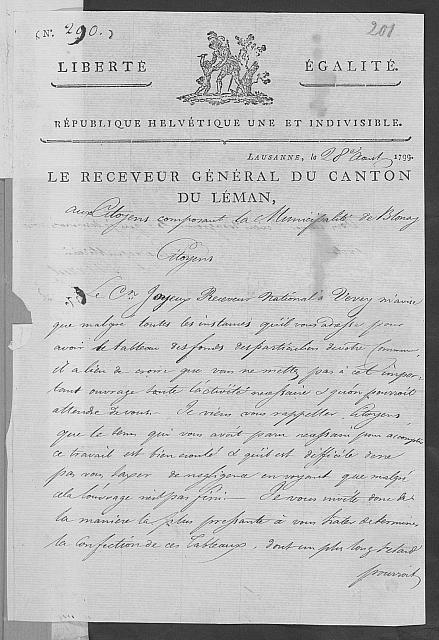 (N.º 290.)
201
LIBERTÉ ÉGALITÉ.
RÉPUBLIQUE HELVÉTIQUE UNE ET INDIVISIBLE.
LAUSANNE, le 28e Aout 1799.
LE RECEVEUR GÉNÉRAL DU CANTON
DU LÉMAN,
aux Citoyens composant la Municipalité de Blonay
Citoyens
Le Cn. Joyeux Receveur National à Vevey m'avise
que malgré toutes les instances qu'il vous adresse pour
avoir le tableau des fonds des particuliers de votre Commune,
il a lieu de croire que vous ne mettez pas à cet impor-
tant ouvrage toute l'activité necessaire & qu'on pourroit
attendre de vous. — Je viens vous rappeller Citoyens,
que le tems qui vous avoit paru necessaire pour accomplir
ce travail est bien écoulé & qu'il est difficile de ne
pas vous taxer de negligence en voyant que malgré
cela l'ouvrage n'est pas fini — Je vous invite donc de
la manière la plus pressante à vous hater de terminer
la Confection de ces Tableaux, dont un plus long retard
pourroit